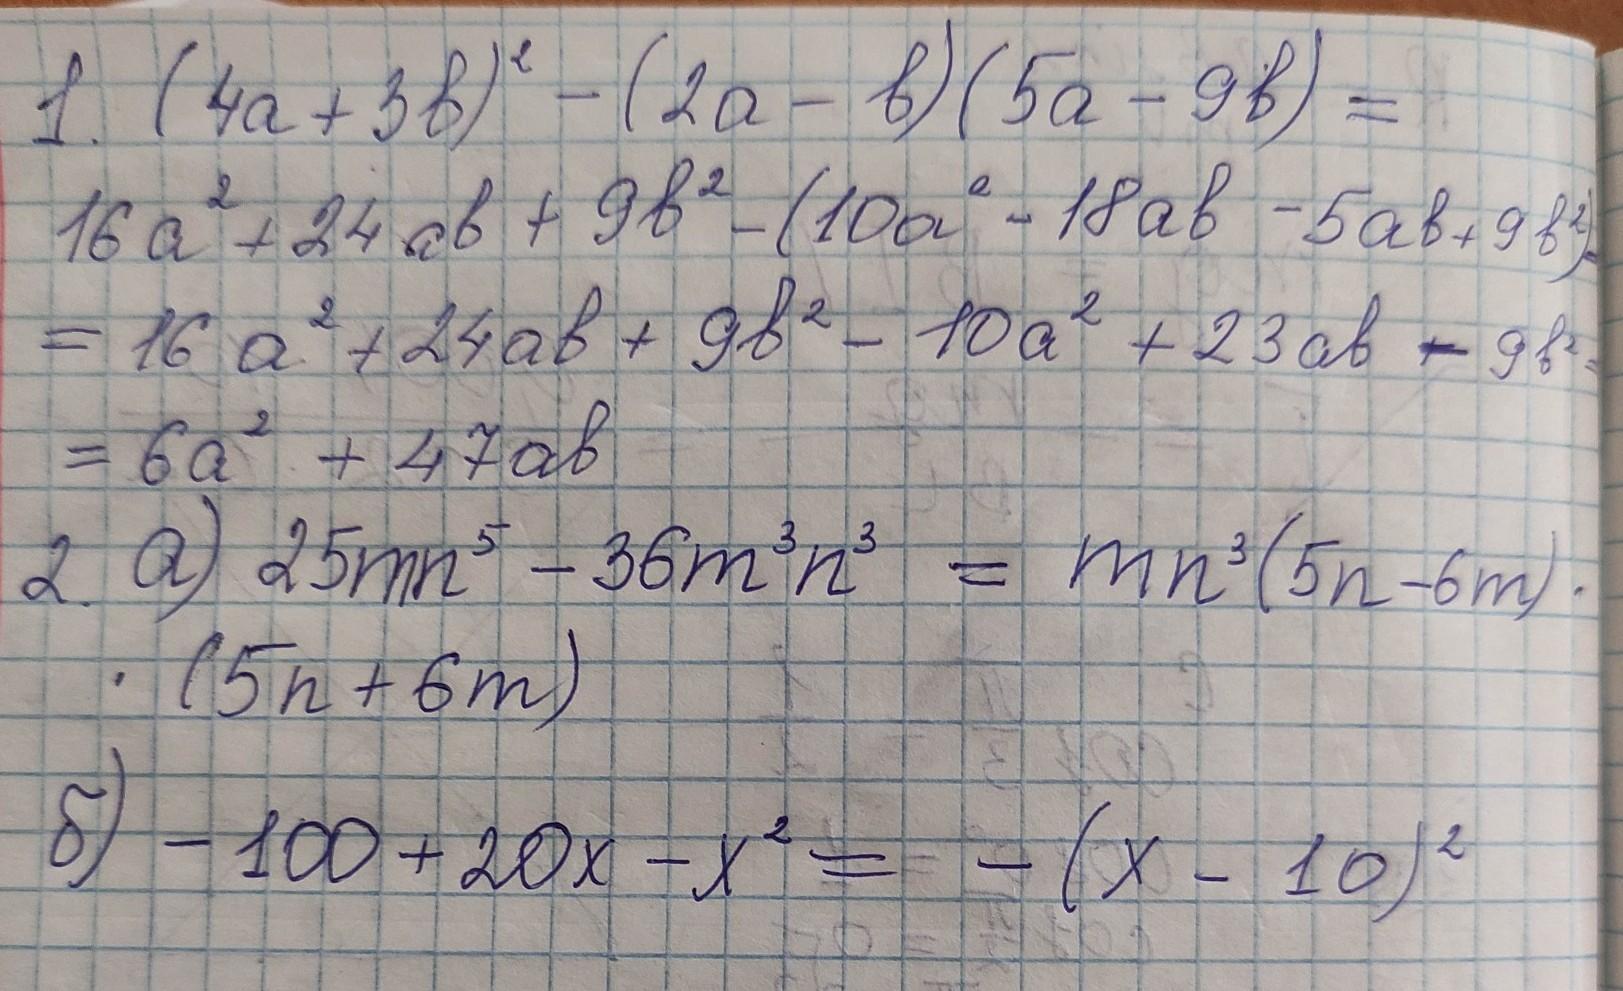 1. (4a + 3b)² - (2a - b)(5a - 9b) =
16a² + 24ab + 9b² - (10a² - 18ab - 5ab + 9b²) =
= 16a² + 24ab + 9b² - 10a² + 23ab - 9b² =
= 6a² + 47ab
2. а) 25mn⁵ - 36m³n³ = mn³(5n - 6m) ·
· (5n + 6m)
б) - 100 + 20x - x² = - (x - 10)²